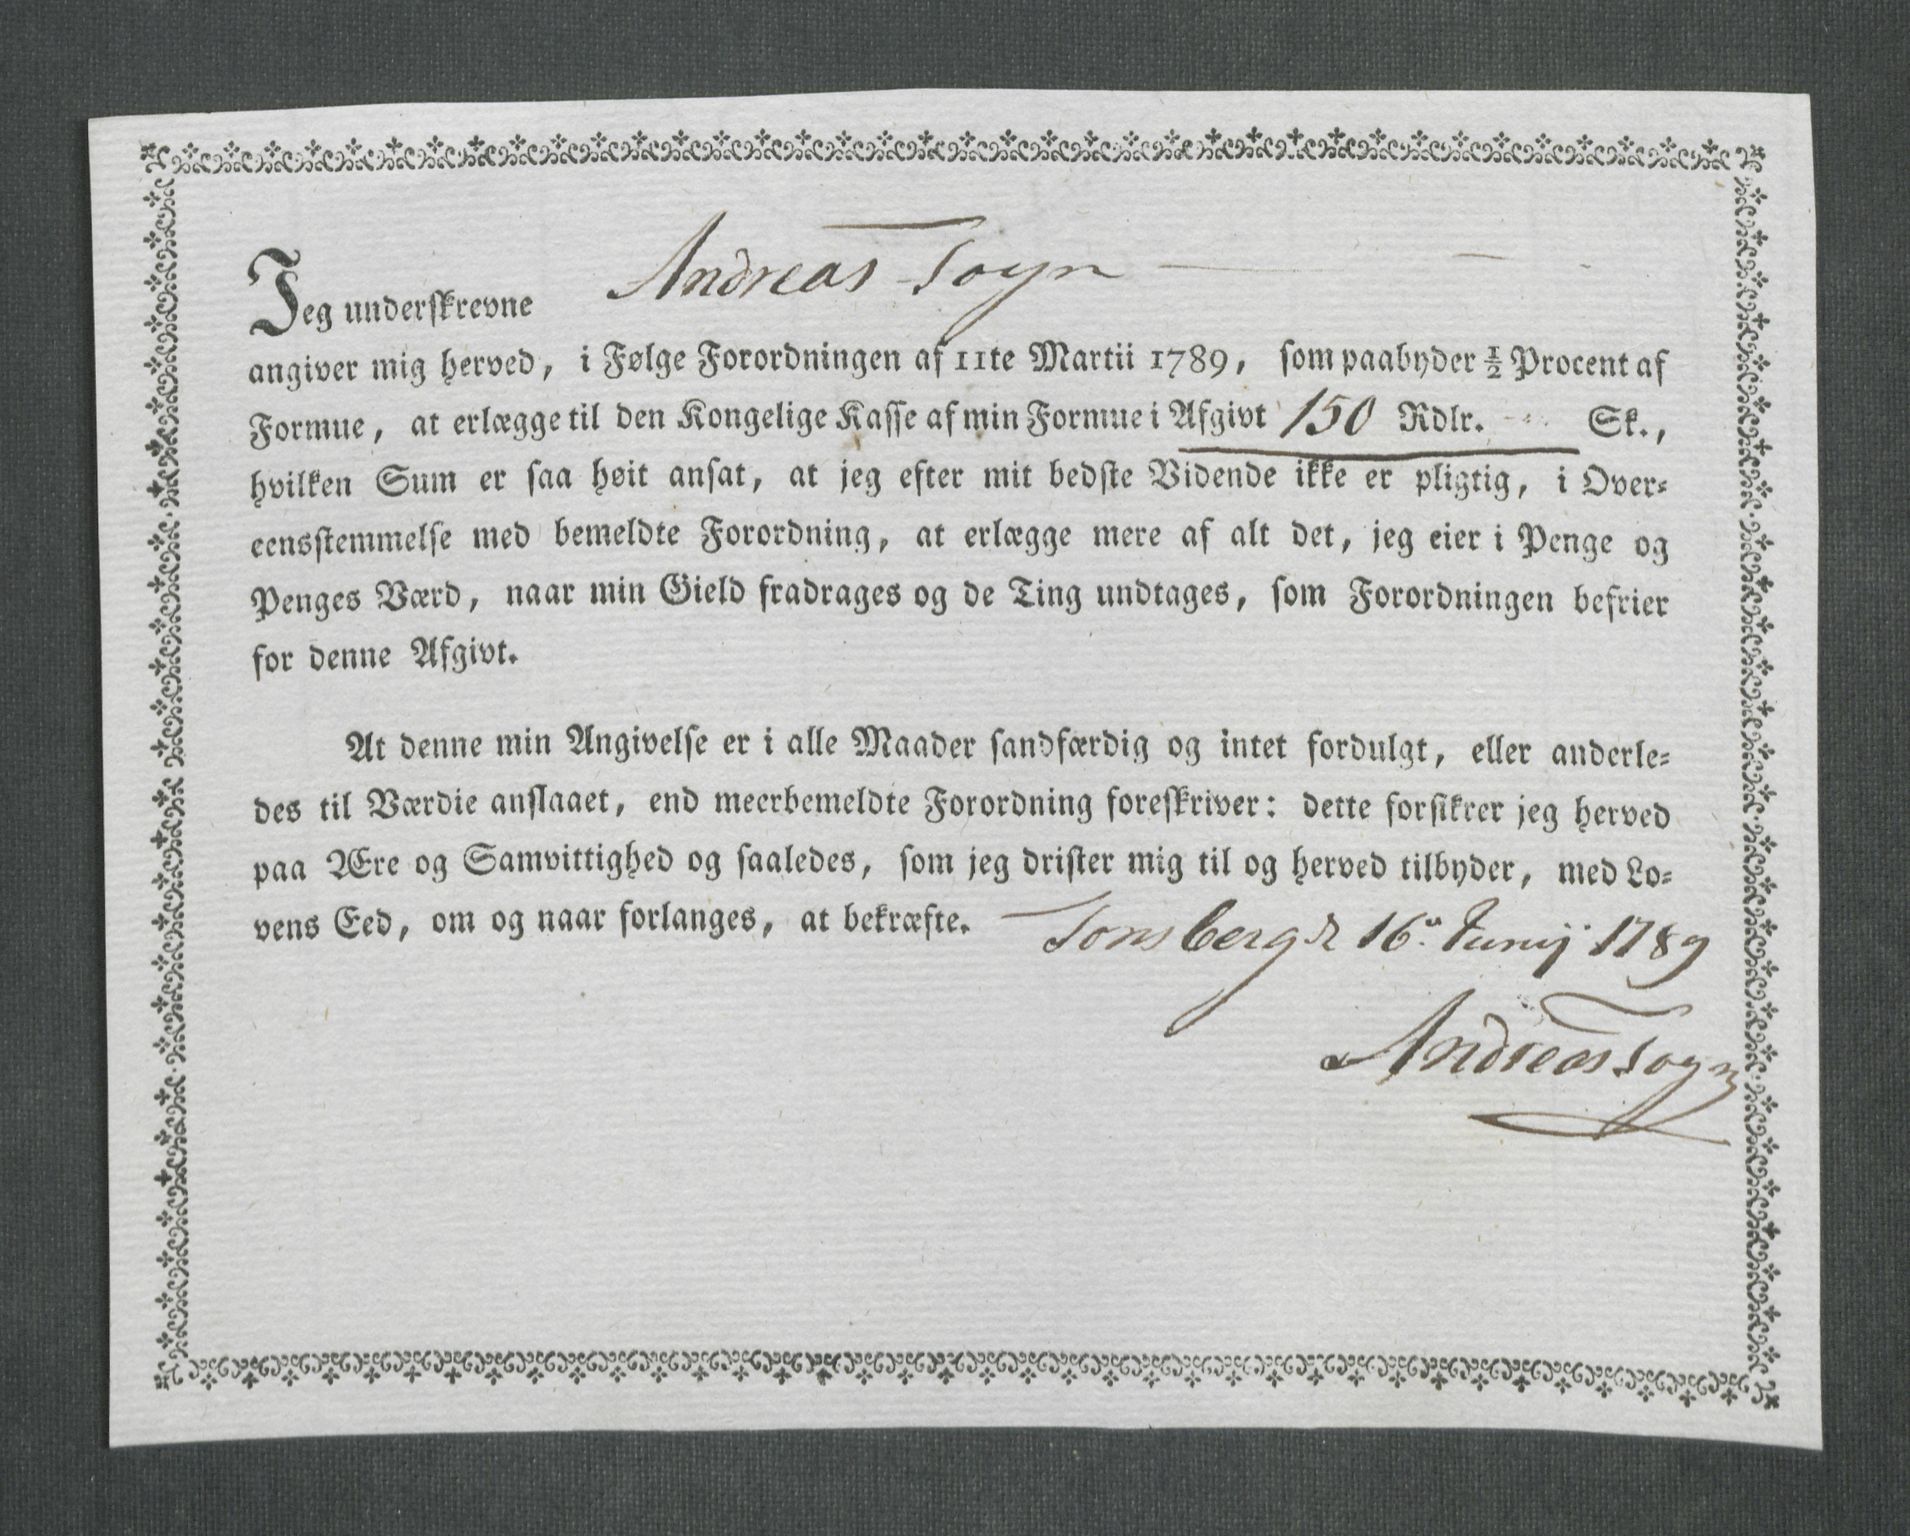 Jeg underskrevne Andreas Foyn
angiver mig herved, i Følge Forordningen af 11te Martii 1789, som paabyder ½ Procent af
Formue, at erlægge til den Kongelige Kasse af min Formue i Afgivt 150 Rdlr. - Sk.,
hvilken Sum er saa høit ansat, at jeg efter mit bedste Vidende ikke er pligtig, i Over-
eensstemmelse med bemeldte Forordning, at erlægge mere af alt det, jeg eier i Penge og
Penges Værd, naar min Gield fradrages og de Ting undtages, som Forordningen befrier
for denne Afgivt.
At denne min Angivelse er i alle Maader sandfærdig og intet fordulgt, eller anderle-
des til Værdie anslaaet, end meerbemeldte Forordning foreskriver: dette forsikrer jeg herved
paa Ære og Samvittighed og saaledes, som jeg drister mig til og herved tilbyder, med Lo-
vens Eed, om og naar forlanges, at bekræfte. Tonsberg d 16. Junij 1789
Andreas Foyn